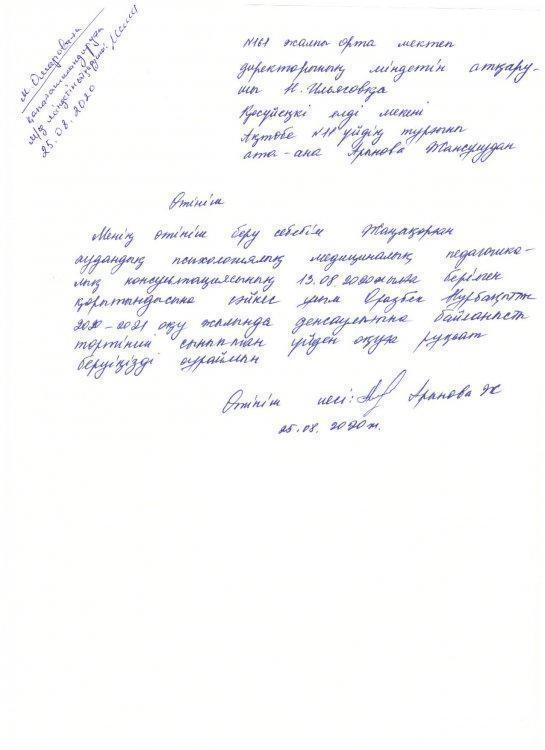 М. Омароваға
25.08.2020
№161 жалпы орта мектеп
директорының міндетін атқару-
шы Н. Ильясовқа
елді мекені
Ақтөбе №11 үйдің тұрғыны
ата-ана Арынова Жансулудан
Өтініш
Менің өтініш беру себебім Жаңақорған
аудандық психологиялық медициналық педагогика-
лық консультациясының 13.08.2020 жылғы берілген
қорытындысына сәйкес ұлым Оразбек Нұрбақытты
2020-2021 оқу жылында денсаулығына байланысты
төртінші сыныптан үйден оқуға рұқсат
беруіңізді сұраймын
Өтініш иесі: Арынова Ж
25.08.2020ж.